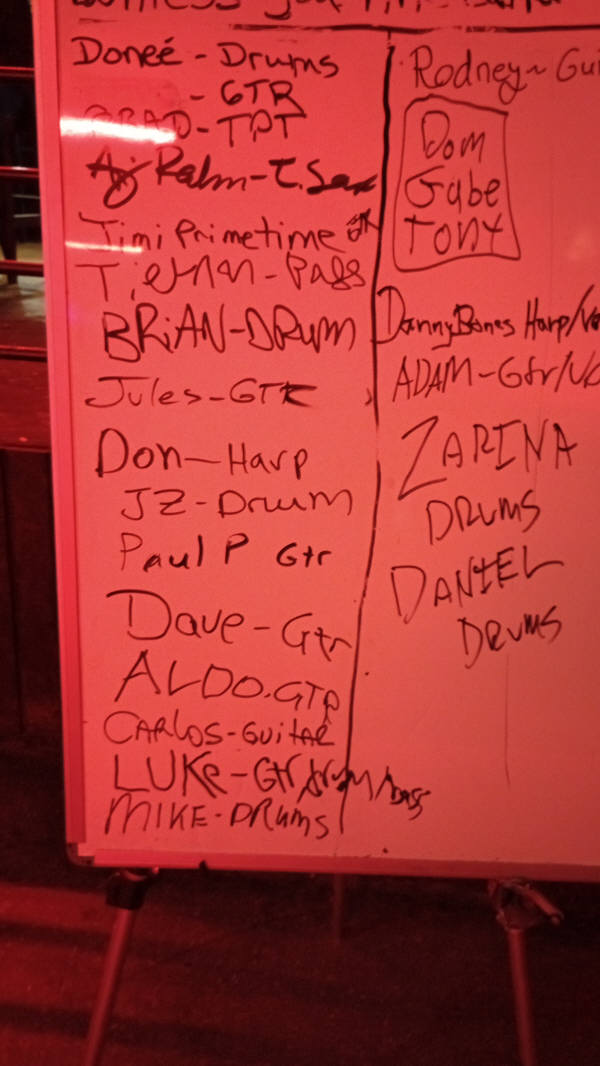 Doneé - Drums
- GTR
BRAD - TPT
AJ Rahm - T. Sax
Jimi Primetime
BRiAN - DRUM
Jules - GTR
Don - Harp
JZ - Drum
Paul P Gtr
Dave - Gtr
ALDO. GTR
CARLOS - GuitAR
LUKe - Gtr/drum/bass
MIKE - DRums
Rodney ~ Gui
Dom
Gabe
TONY
Danny Bones Harp/Vo
ADAM - Gtr/VO
ZARINA
DRUMS
DANIEL
DRUMS